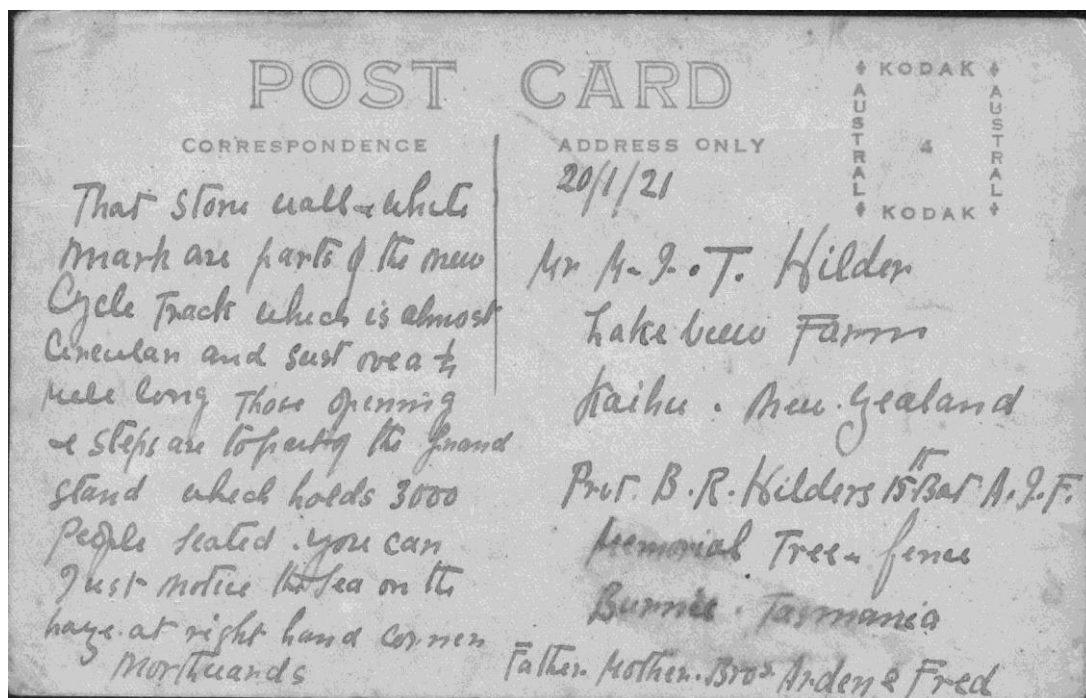 POST CARD
CORRESPONDENCE
ADDRESS ONLY
KODAK
AUSTRAL
4
AUSTRAL
KODAK
That stone wall & white
mark are parts of the new
Cycle Track which is almost
Circular and just over a
mile long Those opening
& steps are top part of the Grand
stand which holds 3000
People seated. you can
Just notice the Sea on the
haze at right hand corner
Northwards
20/1/21
Mr T. Hilder
Lake View Farm
Kaihu. New. Zealand
Pret. B. R. Hilders 15th Bat A.I.F.
Memorial Tree & fence
Burnie. Tasmania
Father. Mother. Bros Arden & Fred